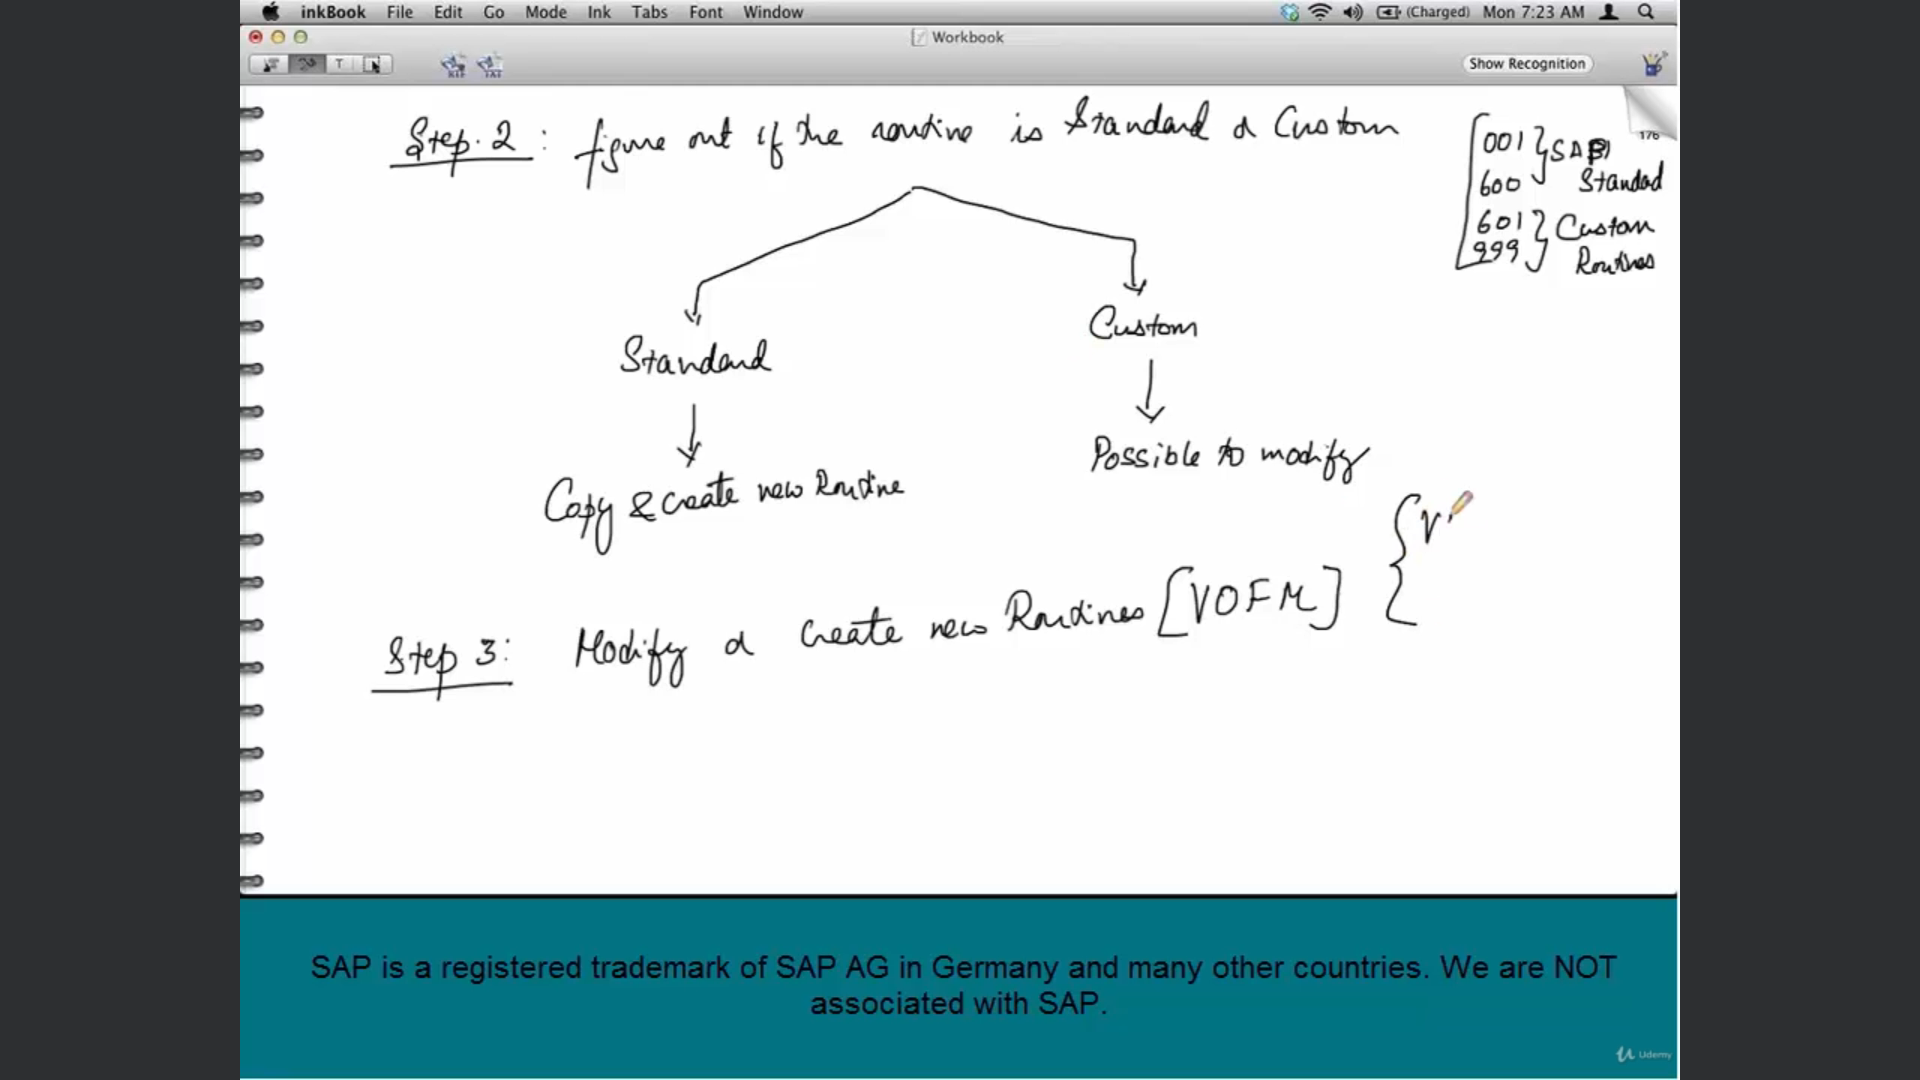 inkBook File Edit Go Mode Ink Tabs Font Window (Charged) Mon 7:23 AM
Workbook
T
Show Recognition
176
Step.2: figure out if the routine is Standard or Custom
001 } SAP
600 Standad
601 } Custom
999 Routines
Standard
Custom
Copy & create new Routine
Possible to modify
{ V
Step 3: Modify or create new Routines [VOFM]
SAP is a registered trademark of SAP AG in Germany and many other countries. We are NOT
associated with SAP.
Udemy